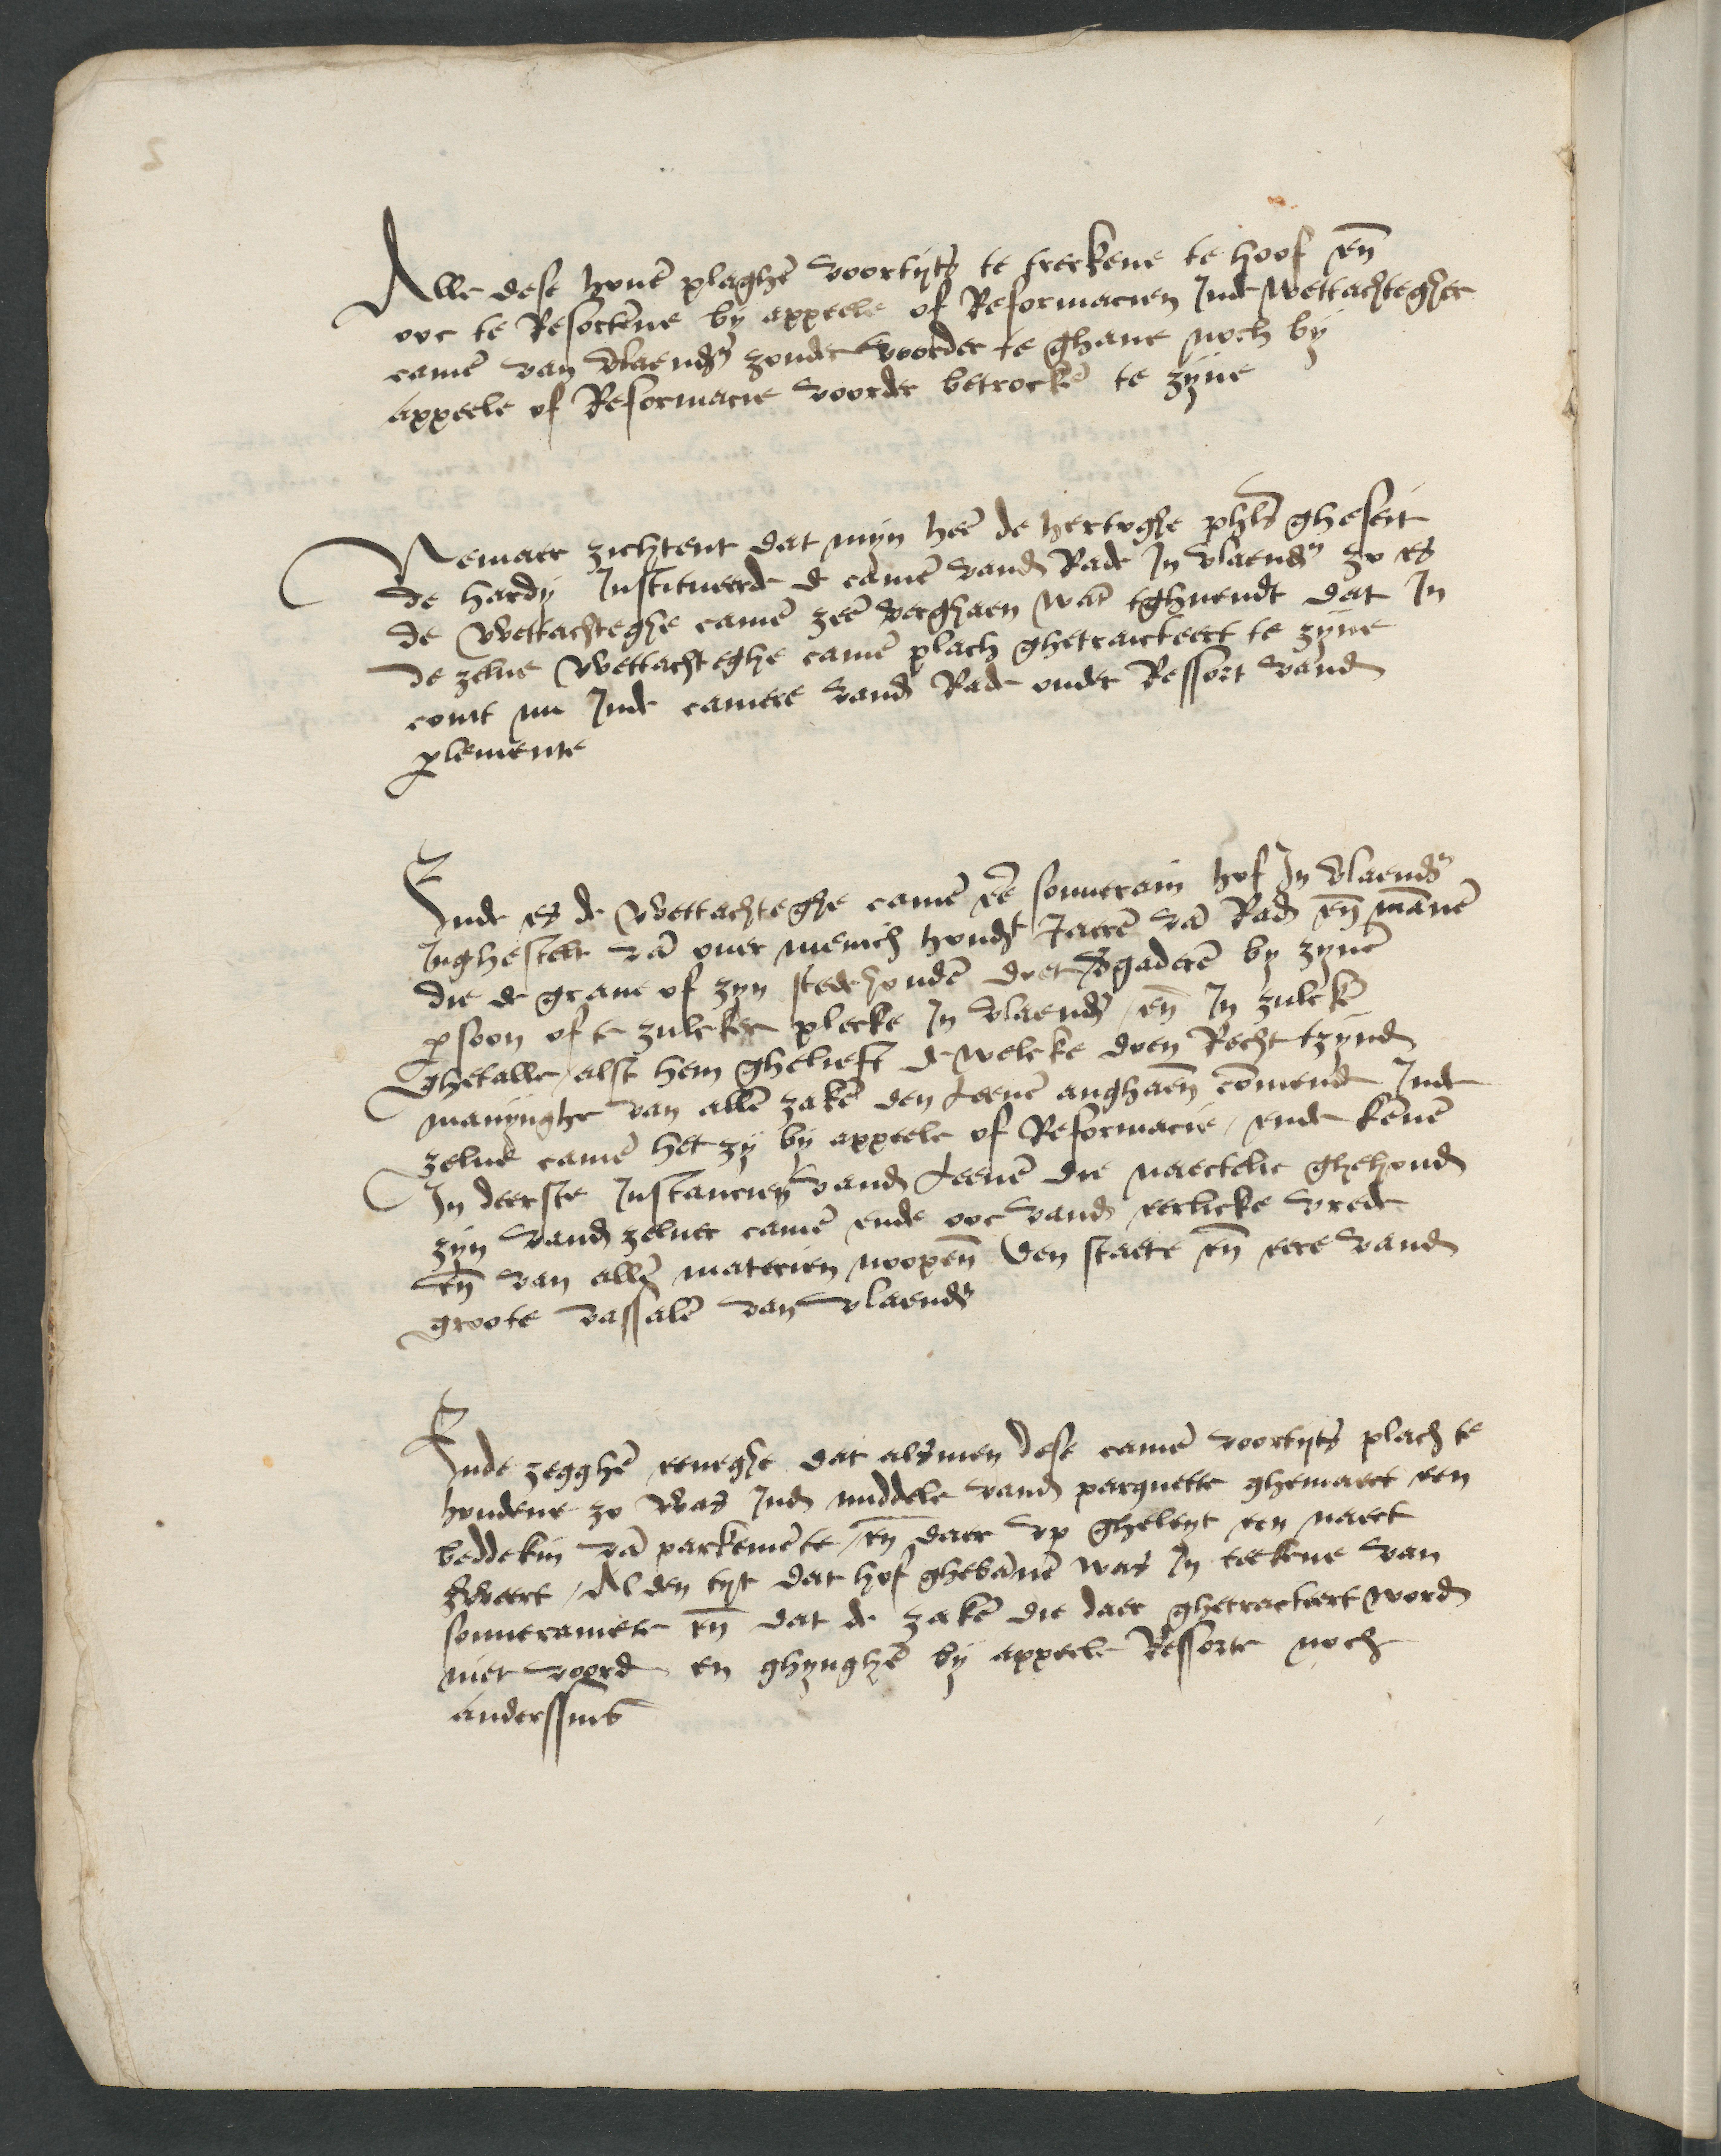 Alle dese houē plaghē voortyts te treckene te hoof eñ
ooc te Resortene by appeele of Reformacien Inde wettachtegher
camē van vlaendr̄ zonder voorder te ghane noch by
appeele of Reformacie voorder betrockē te zyne
Nemaer zichtent dat myn heē de hertoghe phls gheseit
de hardy Institueerde de camē vand Rade In vlaendr̄ zo es
de wettachteghe camē zeē verghaen wāt tghuendt dat In
de zelue wettachteghe camē plach ghetraicteert te zyne
comt nu Inde camere vand Rade onder Ressort vand
plemente
Ende es de wettachteghe camē eē souuerain hof In vlaendr̄
Inghestelt vā ouer menich hondt Jaerē vā Rad eñ mānē
die de graue of zyn stedehoudē doet vgaderē by zynē
psoon of te zulcker plecke In vlaendr̄ / eñ In zulckē
ghetalle / alst hem ghelieft de welcke doen Recht tzynd
manynghe van allē zakē den Leenē anghaeñ cōmende Inde
zelue camē het zy by appeele of Reformacie / ende kēnē
In deerste Instancien vand Leenē die naectelic ghehoud
zyn vand zeluer camē ende ooc vand eerlicke vrede
eñ van allē materien noopeñ den staete eñ eere vand
groote vassalē van vlaendr̄
Ende zegghē eeneghe dat alsmen dese camē voortyts plach te
houdene zo was Ind middele vand parquette ghemaect een
beddekin vā parkemēte / eñ daer up gheleyt een naect
zweert / Al den tyt dat hof ghebānē was In teekene van
souueraniete eñ dat de zakē die daer ghetracteert word
niet voord en ghynghē by appeele Ressorte noch
anderssins